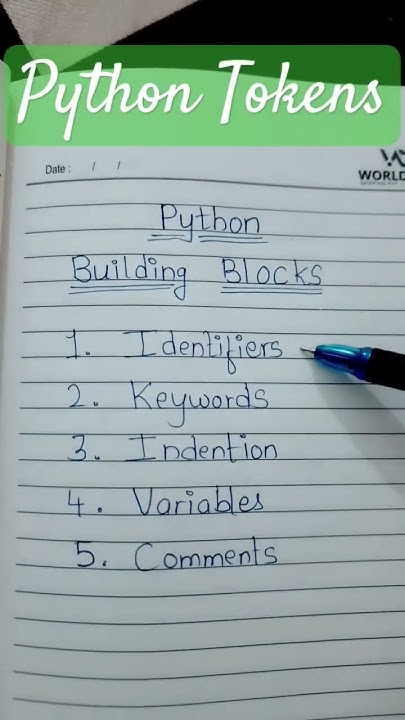 Python Tokens
Date : / /
WORLD
Python
Building Blocks
1. Identifiers
2. Keywords
3. Indention
4. Variables
5. Comments